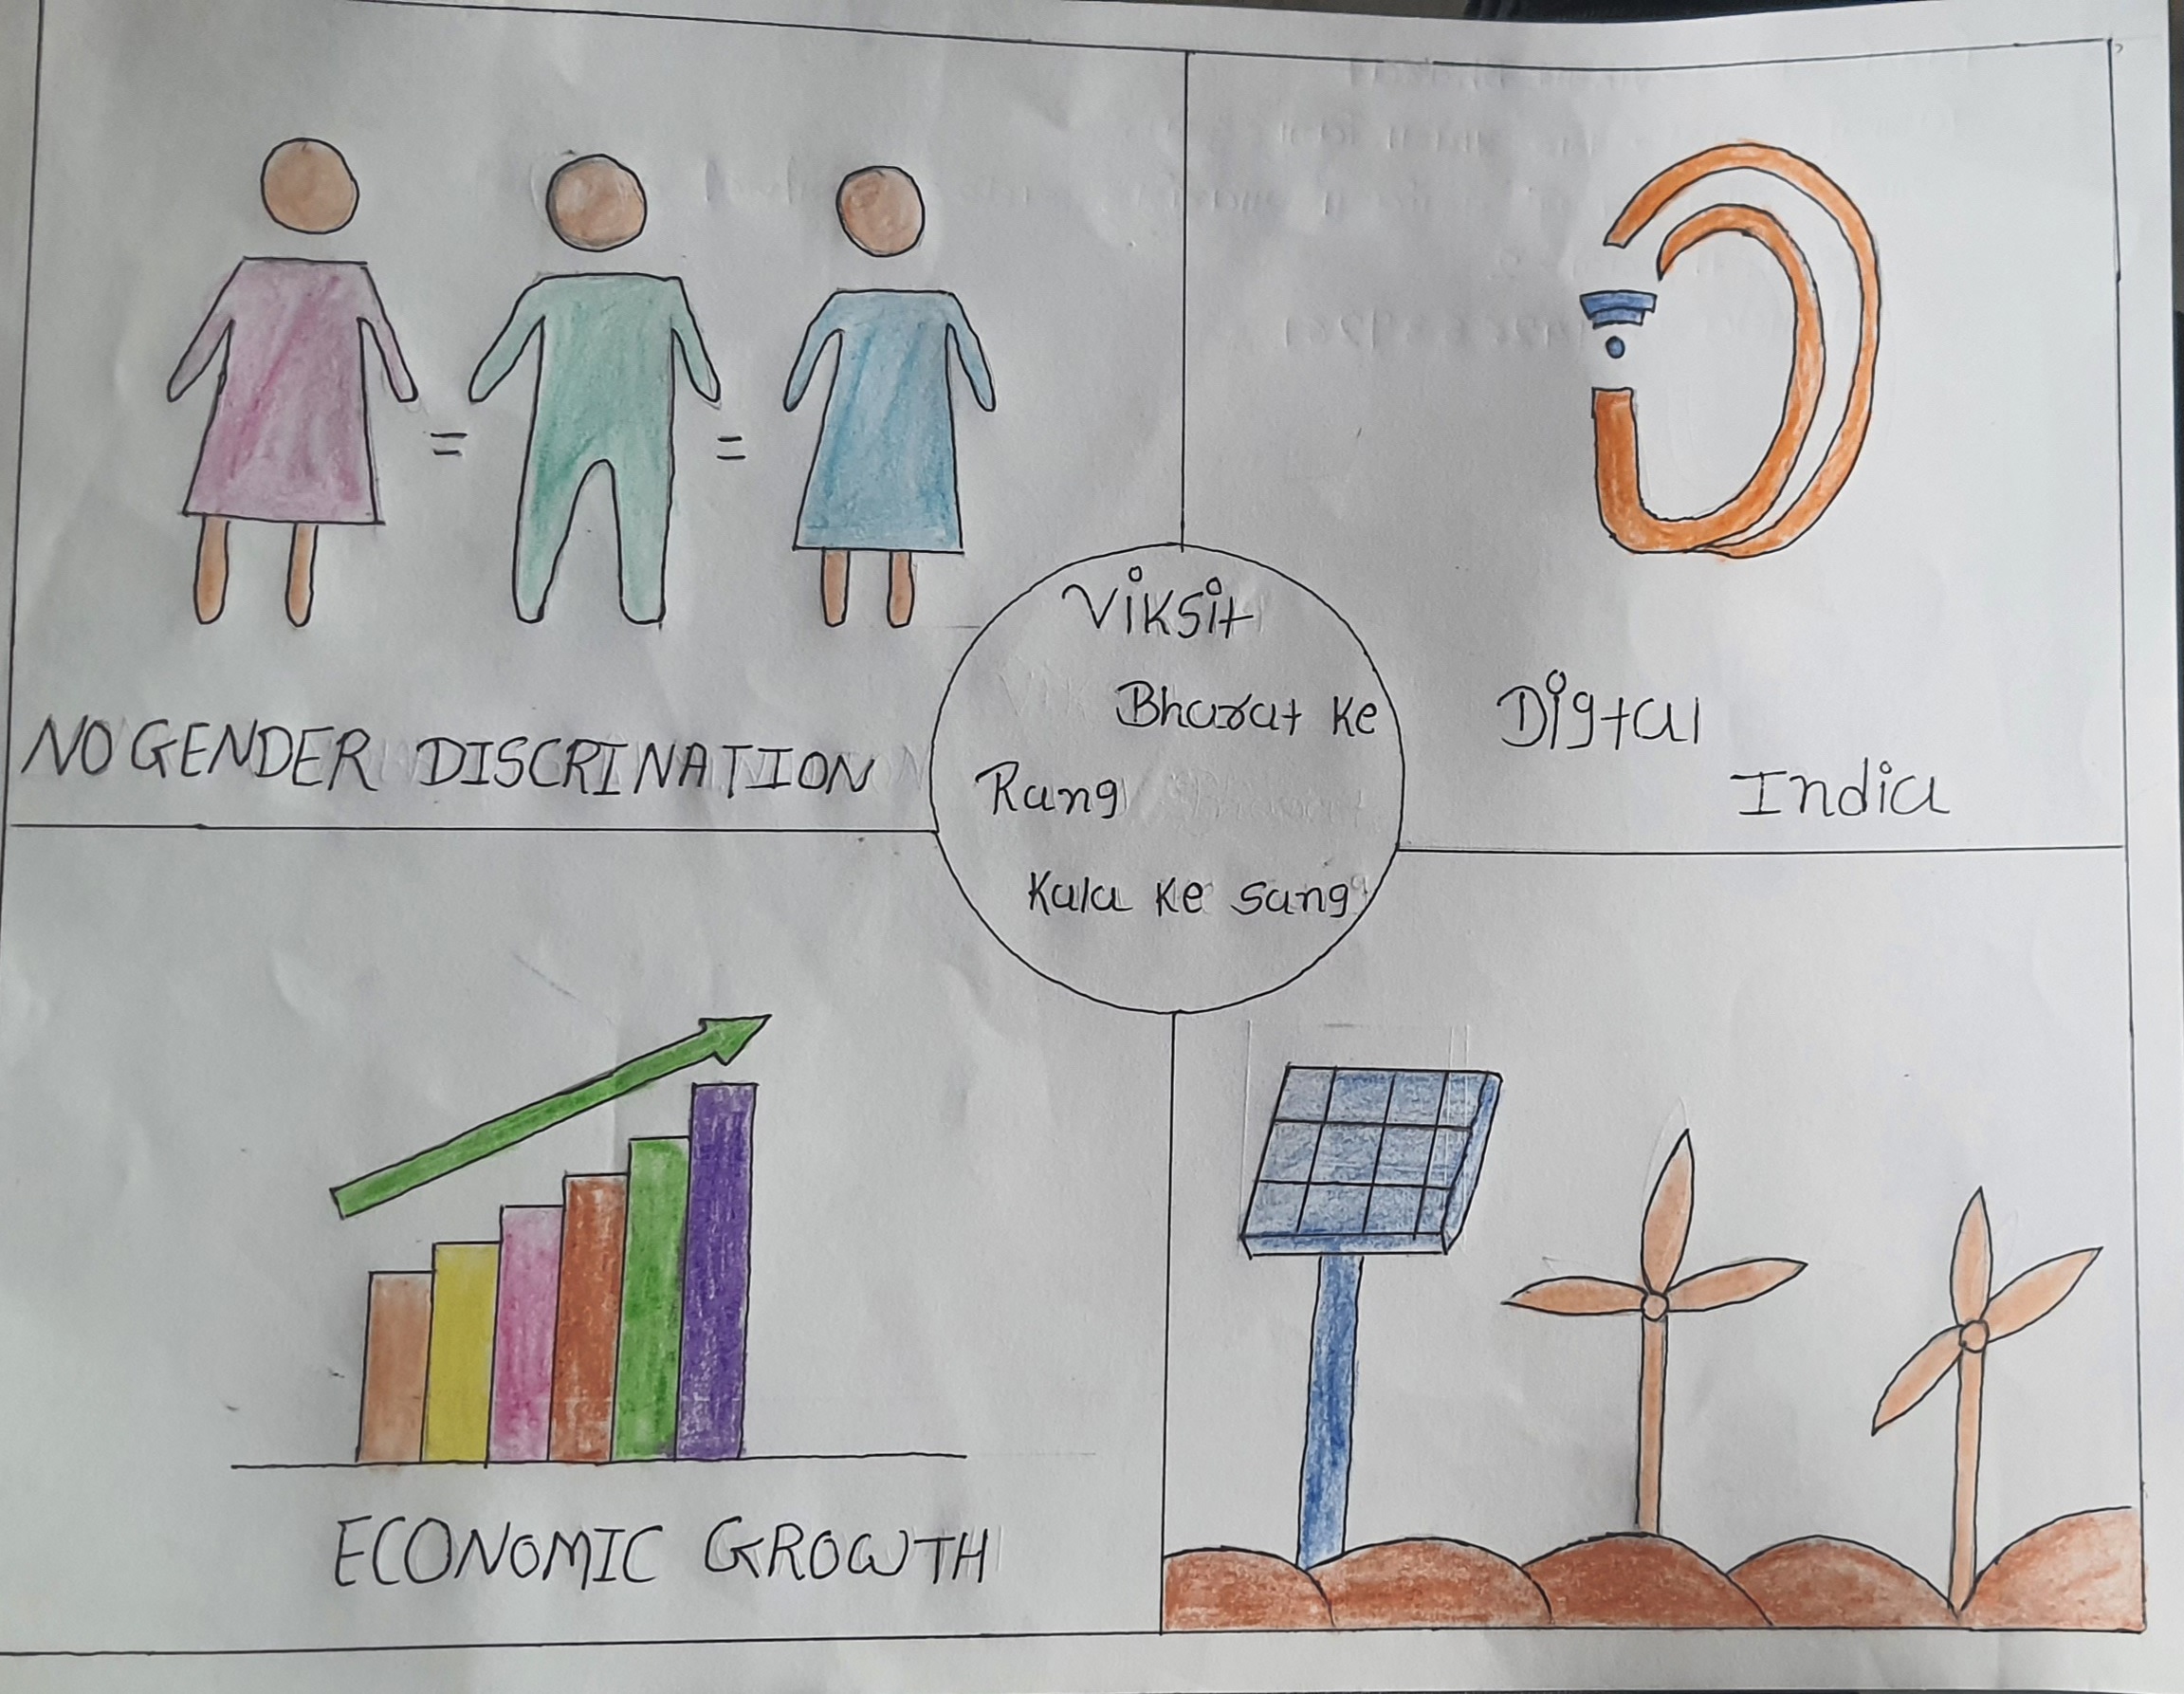 NO GENDER DISCRINATION
Digtal
India
Viksit
Bharat ke
Rang
Kala ke sang
ECONOMIC GROWTH